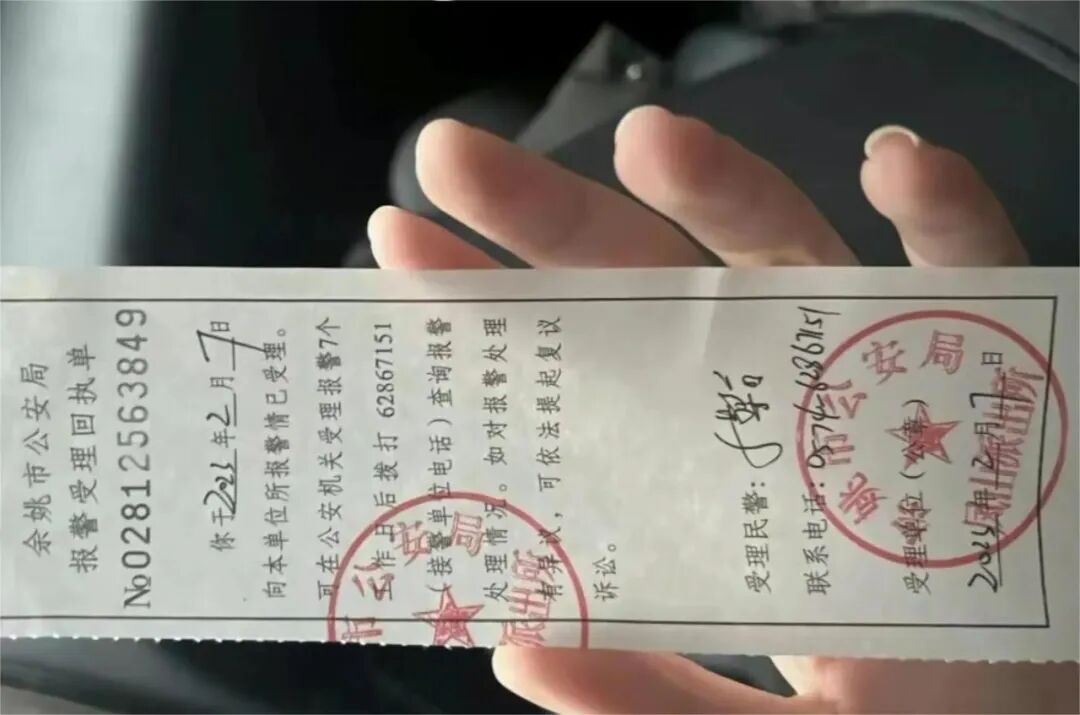 余姚市公安局
报警受理回执单
№0281212563849
你于2025年2月7日
向本单位所报警情已受理。
可在公安机关受理报警7个
工作日后拨打 62867151
(接警单位电话)查询报警
处理情况。如对报警处理
有异议,可依法提起复议
诉讼。
受理民警:
联系电话:0574-62867151
受理单位(公章)
2025年2月7日
市公安局
派出所
姚市公安局
派出所